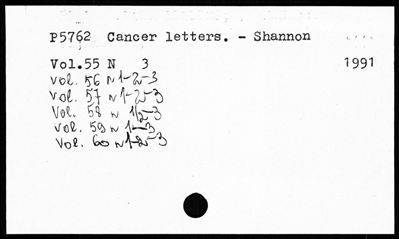 P5762 Cancer letters. - Shannon
Vol.55 N 3 1991
Vol. 56 N 1-2-3
Vol. 57 N 1-2-3
Vol. 58 N 1/2-3
Vol. 59 N 1-3
Vol. 60 N 1-2-3